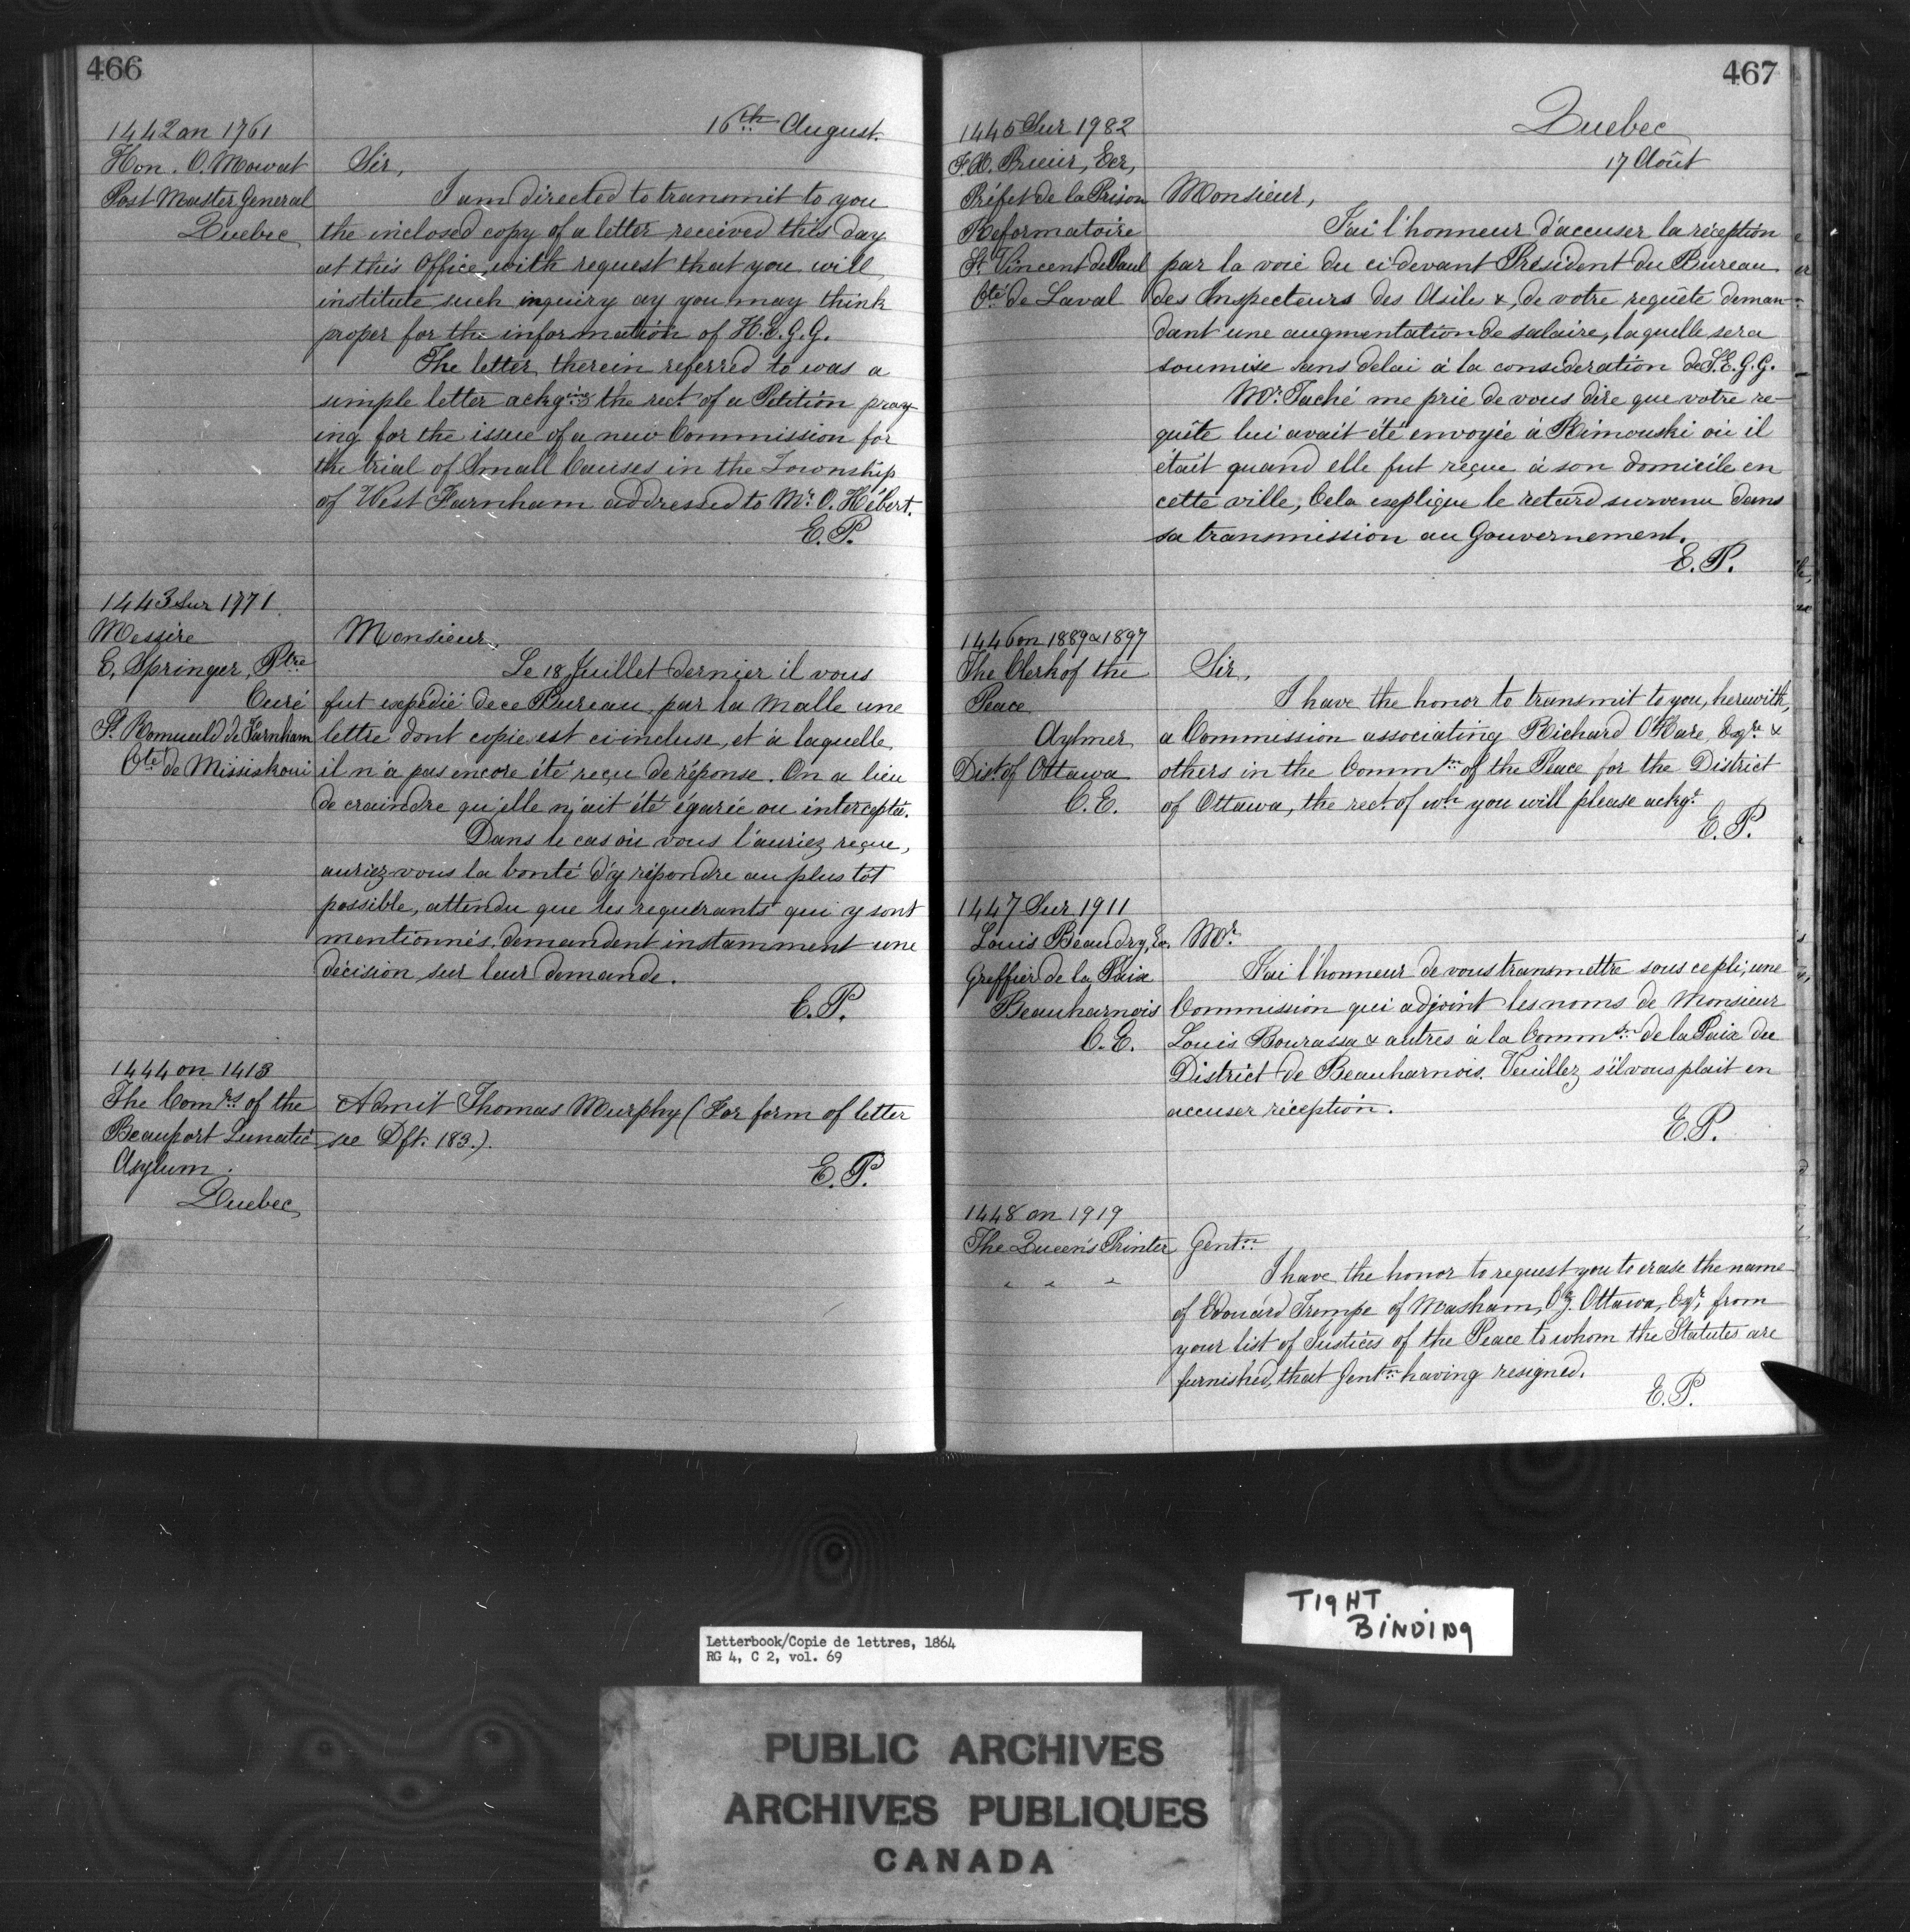 466
16th August.
1442 on 1761
Hon. O. Mowat
Post Master General
Quebec
Sir,
I am directed to transmit to you
the inclosed copy of a letter received this day
at this Office, with request that you will
institute such inquiry ay you may think
proper for the information of H.E.G.G.
The letter therein referred to was a
simple letter ackg.ing the rect. of a Petition pray
ing for the issue of a new Commission for
the trial of Small Causes in the Township
of West Farnham addressed to Mr. O. Hébert.
E.P.
1443 Sur 1771.
Messire
E. Springer, Ptre
Curé
St. Romuald de Farnham
Cté de Missiskoui
Monsieur,
Le 18 Juillet dernier il vous
fut expédié de ce Bureau par la Malle une
lettre dont copie est ci incluse, et à laquelle
il n'a pas encore été reçu de réponse. On a lieu
de craindre qu'elle n'ait été égarée ou interceptée.
Dans le cas où vous l'auriez reçue,
auriez vous la bonté d'y répondre au plus tôt
possible, attendu que les requérants qui y sont
mentionnés, demandent instamment une
décision sur leur demande.
E.P.
1444 on 1413
The Comrs. of the
Beauport Lunatic
Asylum.
Quebec
Admit Thomas Murphy (For form of letter
see Dft. 183.)
E.P.
467
Quebec
17 Août
1445 Sur 1982
Ecr,
Préfet de la Prison
Reformatoire
St. Vincent de Paul
Cté de Laval
Monsieur,
J'ai l'honneur d'accuser la réception
par la voie du ci devant Président du Bureau
des Inspecteurs des Asiles &, de votre requête deman-
dant une augmentation de salaire, laquelle sera
soumise sans delai à la consideration de S.E.G.G.
Mr. Taché me prie de vous dire que votre re-
quête lui avait été envoyée à Rimouski où il
était quand elle fut reçue à son domicile en
cette ville, Cela explique le retard survenu dans
sa transmission au Gouvernement.
E.P.
1446 on 1889 & 1897
The Clerk of the
Peace
Aylmer
Dist of Ottawa
C.E.
Sir,
I have the honor to transmit to you, herewith,
a Commission associating Richard O'Hare, Esqre &
others in the Commn. of the Peace for the District
of Ottawa, the rect of wh. you will please ackge.
E.P.
1447 Sur 1911
Louis Beaudry, Ec.
Greffier de la Paix
Beauharnois
C.E.
Mr.
J'ai l'honneur de vous transmettre sous ce pli, une
Commission qui adjoint les noms de Monsieur
Louis Bourassa & autres à la Commsn. de la Paix du
District de Beauharnois. Veuillez s'il vous plait en
accuser réception.
E.P.
1448 on 1919
The Queen's Printer
" " "
Gentn.
I have the honor to request you to erase the name
of Edouard Trempe of Masham, Cy. Ottawa, Esqr, from
your list of Justices of the Peace to whom the Statutes are
furnished, that Gentn. having resigned.
E.P.
TIGHT
BINDING
Letterbook/Copie de lettres, 1864
RG 4, C 2, vol. 69
PUBLIC ARCHIVES
ARCHIVES PUBLIQUES
CANADA